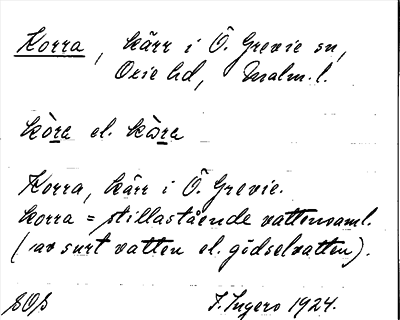 Korra, kärr i Ö. Grevie sn,
Oxie hd, Malm. l.
kòra el. kòra
Korra, kärr i Ö. Grevie.
korra = stillastående vattensaml.
(av surt vatten el. gödselvatten).
I. Ingers 1924.